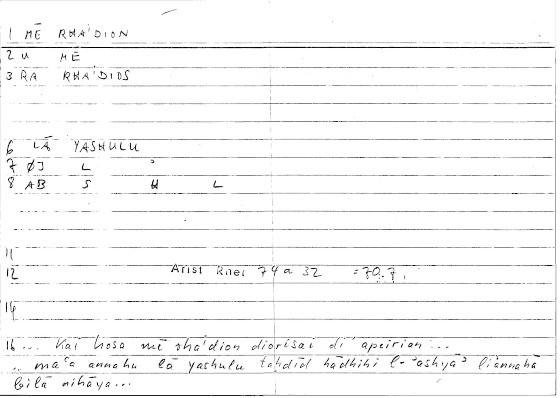 1 MĒ RHA'DION
2 U MĒ
3 RA RHA'DIOS
6 LĀ YASHULU
7 ØJ L ʾ
8 AB S H L
11
12 Arist Rhet 74a 32 =70.7,
14
16 ... kai hosa mē rha'dion diorisai di' apeirian ...
.. maʿa annahu lā yashulu taḥdīd hādhihi l-ʾashyāʾ liannahā
bilā nihāya...